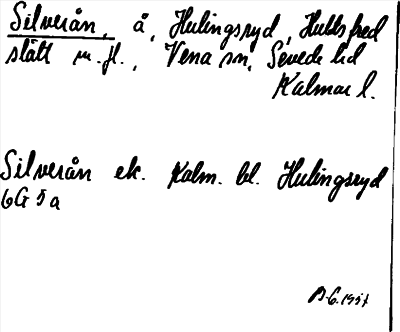 Silverån, å, Hulingsryd, Hultsfred
slätt m.fl., Vena sn, Sevede hd
Kalmar l.
Silverån ek. Kalm. bl. Hulingsryd
6G 5a